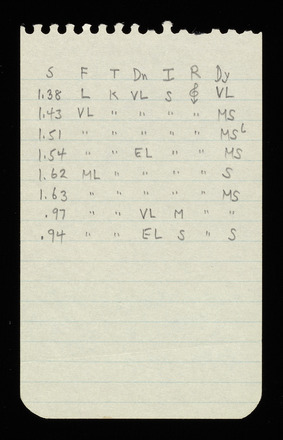 S F T Dn I R Dy
1.38 L K VL S VL
1.43 VL " " " " MS
1.51 " " " " " MS
1.54 " " EL " " MS
1.62 ML " " " " S
1.63 " " " " " MS
.97 " " VL M " "
.94 " " EL S " S